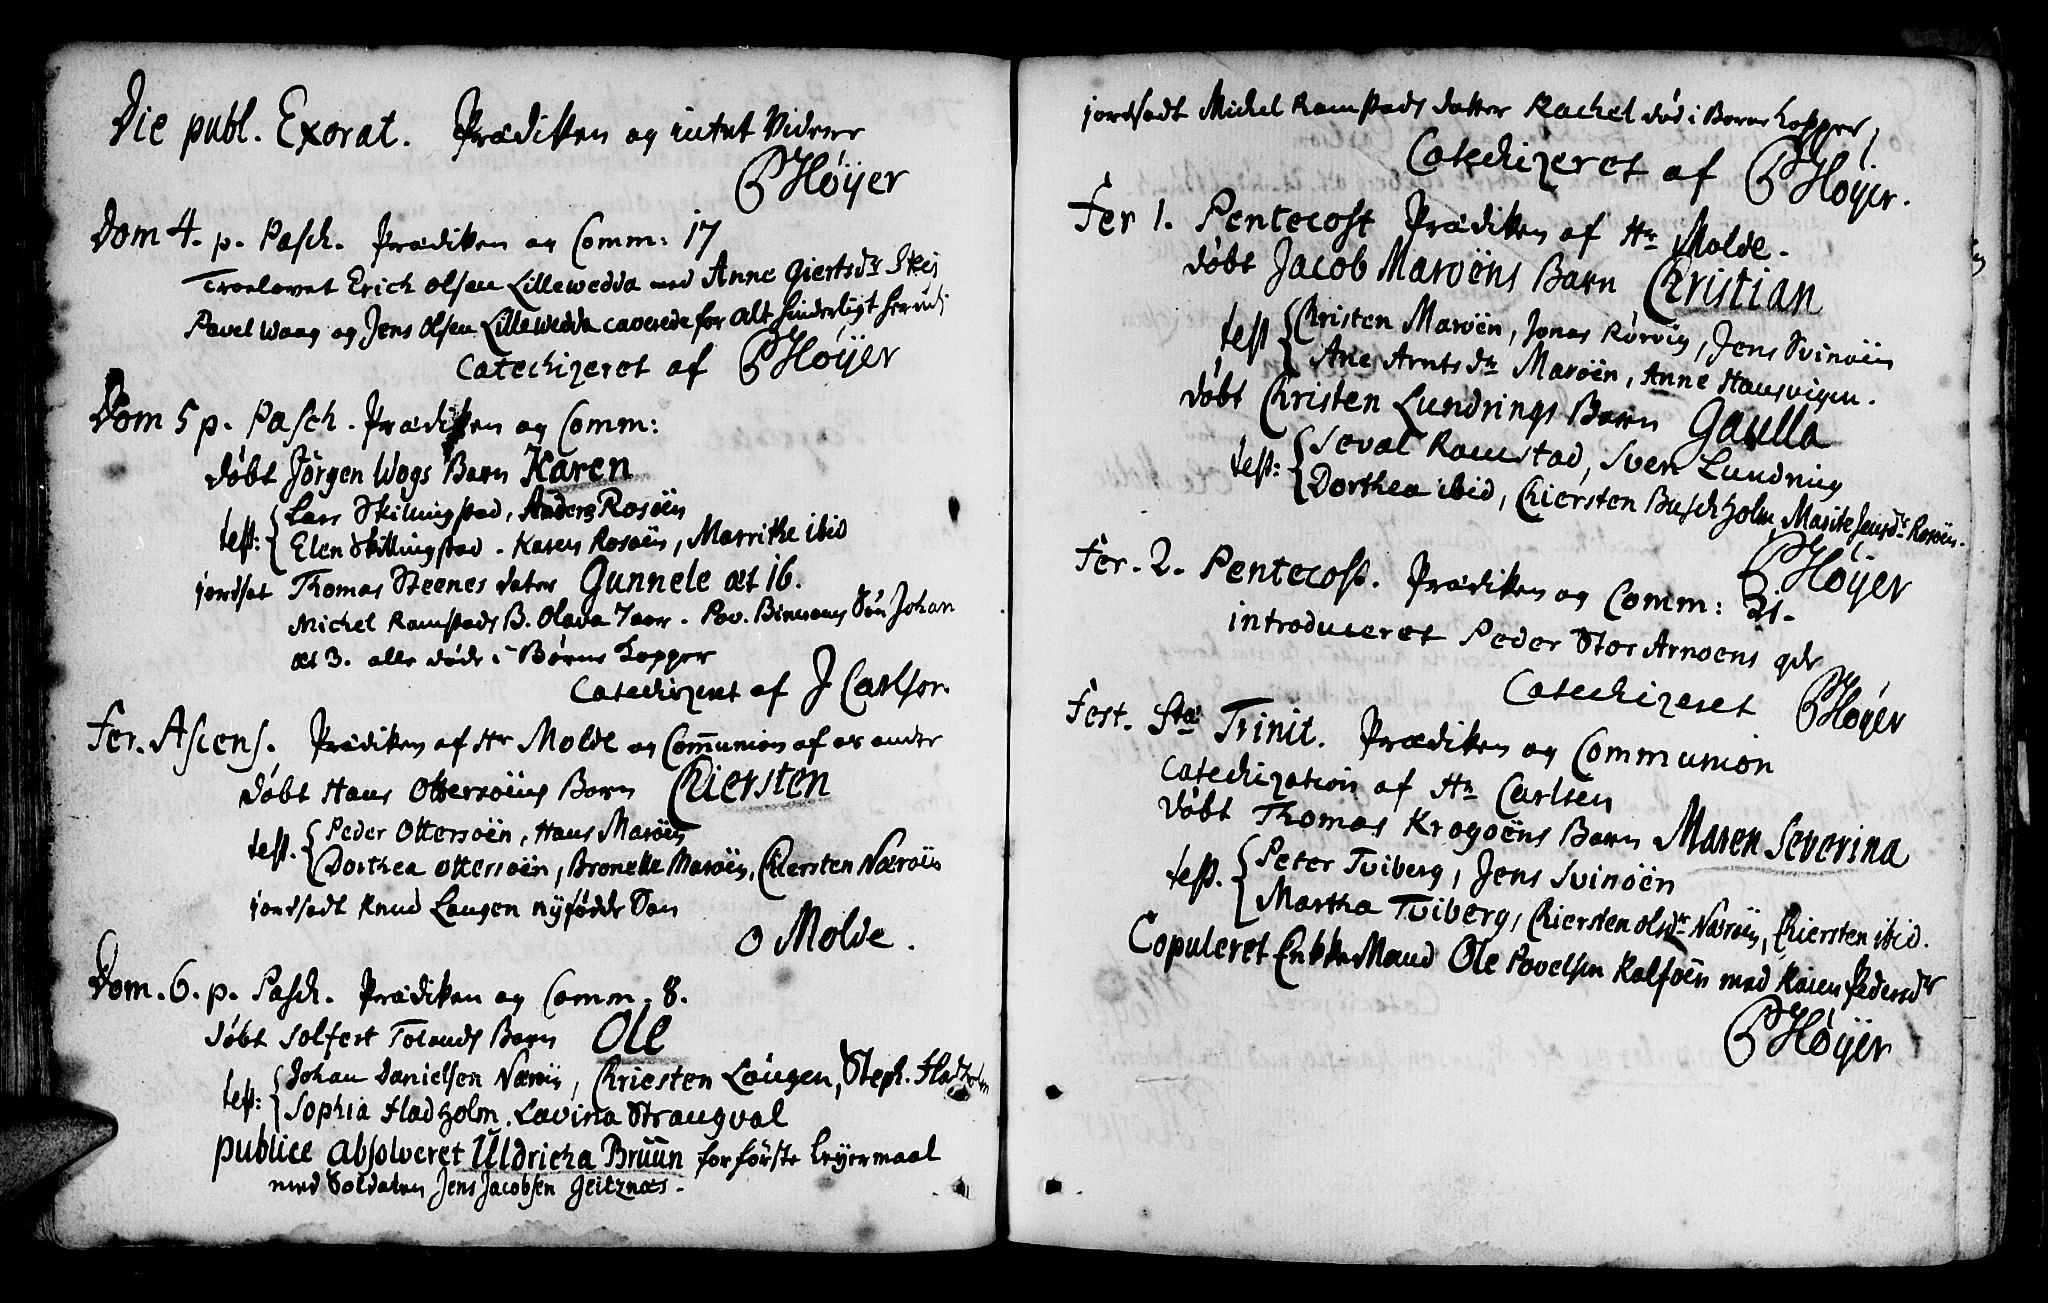 Die publ. Exorat. Prædiken og intet Videre
P Høÿer
Dom 4. p. Pasch. Prædiken og Comm: 17
Troelovet Erich Olsen Lillewedda med Anne Giertsdr Skej
Pavel Waag og Jens Olsen Lillewedda caverede for alt hinderligt herudj
Catechizeret af P Høÿer
Dom 5 p. Pasch. Prædiken og Comm:
døbt Jörgen Wogs Barn Karen
test: Lars Skillingstad, Anders Rosöen
Elen Skillingstad. Karen Rosöen, Marrithe ibid
jordsat Thomas Steenes dater Gunnele æt 16.
Michel Ramstads B. Olava 7 aar. Pov. Søn Johan
æt 3. alle døde i Børne Kopper
Catechizeret af J Carlsen.
Fer. Ascens. Prædiken af Hr Molde og Communion af os ander
døbt Hans Ottersöens Barn Chiersten
test. Peder Ottersöen, Hans Maröen
Dorthea Ottersöen, Bronelle Maröen, Chiersten Nærøen
jordsadt Knud Laugen nÿfødde Søn
O Molde.
Dom. 6. p. Pasch. Prædiken og Comm. 8.
døbt Solfert Tolands Barn Ole
test: Johan Danielsen Nærøij, Chriesten Löugen, Steph. Fladholm
Sophia Fladholm. Lavina Strangval
publice absolveret Uldricha Bruun for første Leyermaal
med Soldaten Jens Jacobsen Geitznæs.
jordsadt Michel Ramstads datter Rachel død i Børne Kopper,
Catechizeret af P Høÿer.
Fer 1. Pentecost Prædiken af Hr Molde.
døbt Jacob Maroëns Barn Christian
test Christen Maroën, Jonas Rörvig, Jens Svinöen
Ane Arntsdr Maroën, Anne Hansvigen.
døbt Christen Lundrings Barn Gaulla
test: Seval Ramstad, Sven Lundring
Dorthea ibid, Chiersten Buschholm, Marite Jensdr Rosöen.
P Høÿer
Fer. 2. Pentecost. Prædiken og Comm: 31.
introduceret Peder Stor Arnoens qdr
Catechizeret P Høÿer
Fest. Stæ Trinit. Prædiken og Communion
Catechization af Hr Carlsen
døbt Thomas Kragoëns Barn Maren Severina
test. Peter Tviberg, Jens Svinöen
Martha Tviberg, Chiersten olsdr Nærøen, Chiersten ibid.
Copuleret Enkke Mand Ole Povelsen Kalfoën med Karen Pedersdr
P Høÿer